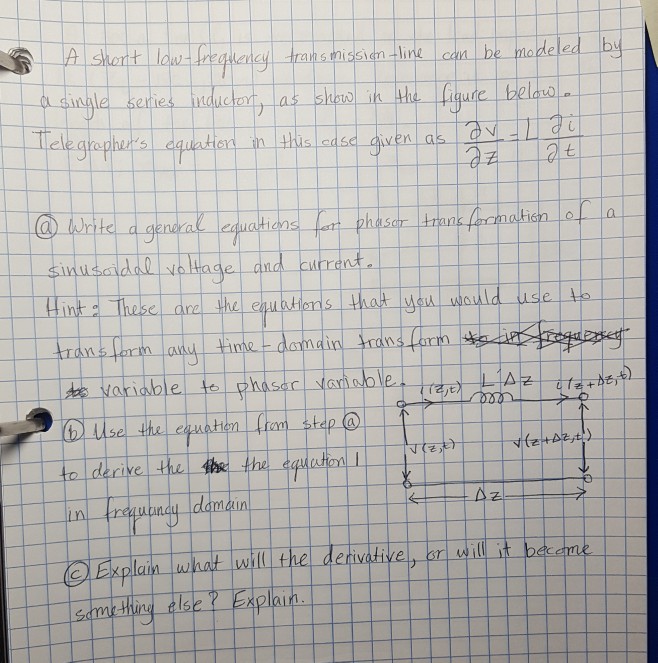 A short low-frequency transmission-line can be modeled by
a single series inductor, as show in the figure below.
Telegrapher's equation in this case given as ∂v/∂z = L ∂i/∂t
ⓐ Write a general equations for phasor transformation of a
sinusoidal voltage and current.
Hint: These are the equations that you would use to
transform any time-domain transform
variable to phasor variable.
i(z,t) L'Δz i(z+Δz,t)
ⓑ Use the equation from step ⓐ
v(z,t) v(z+Δz,t)
to derive the the equation 1
Δz
in frequancy domain
ⓒ Explain what will the derivative, or will it become
something else? Explain.